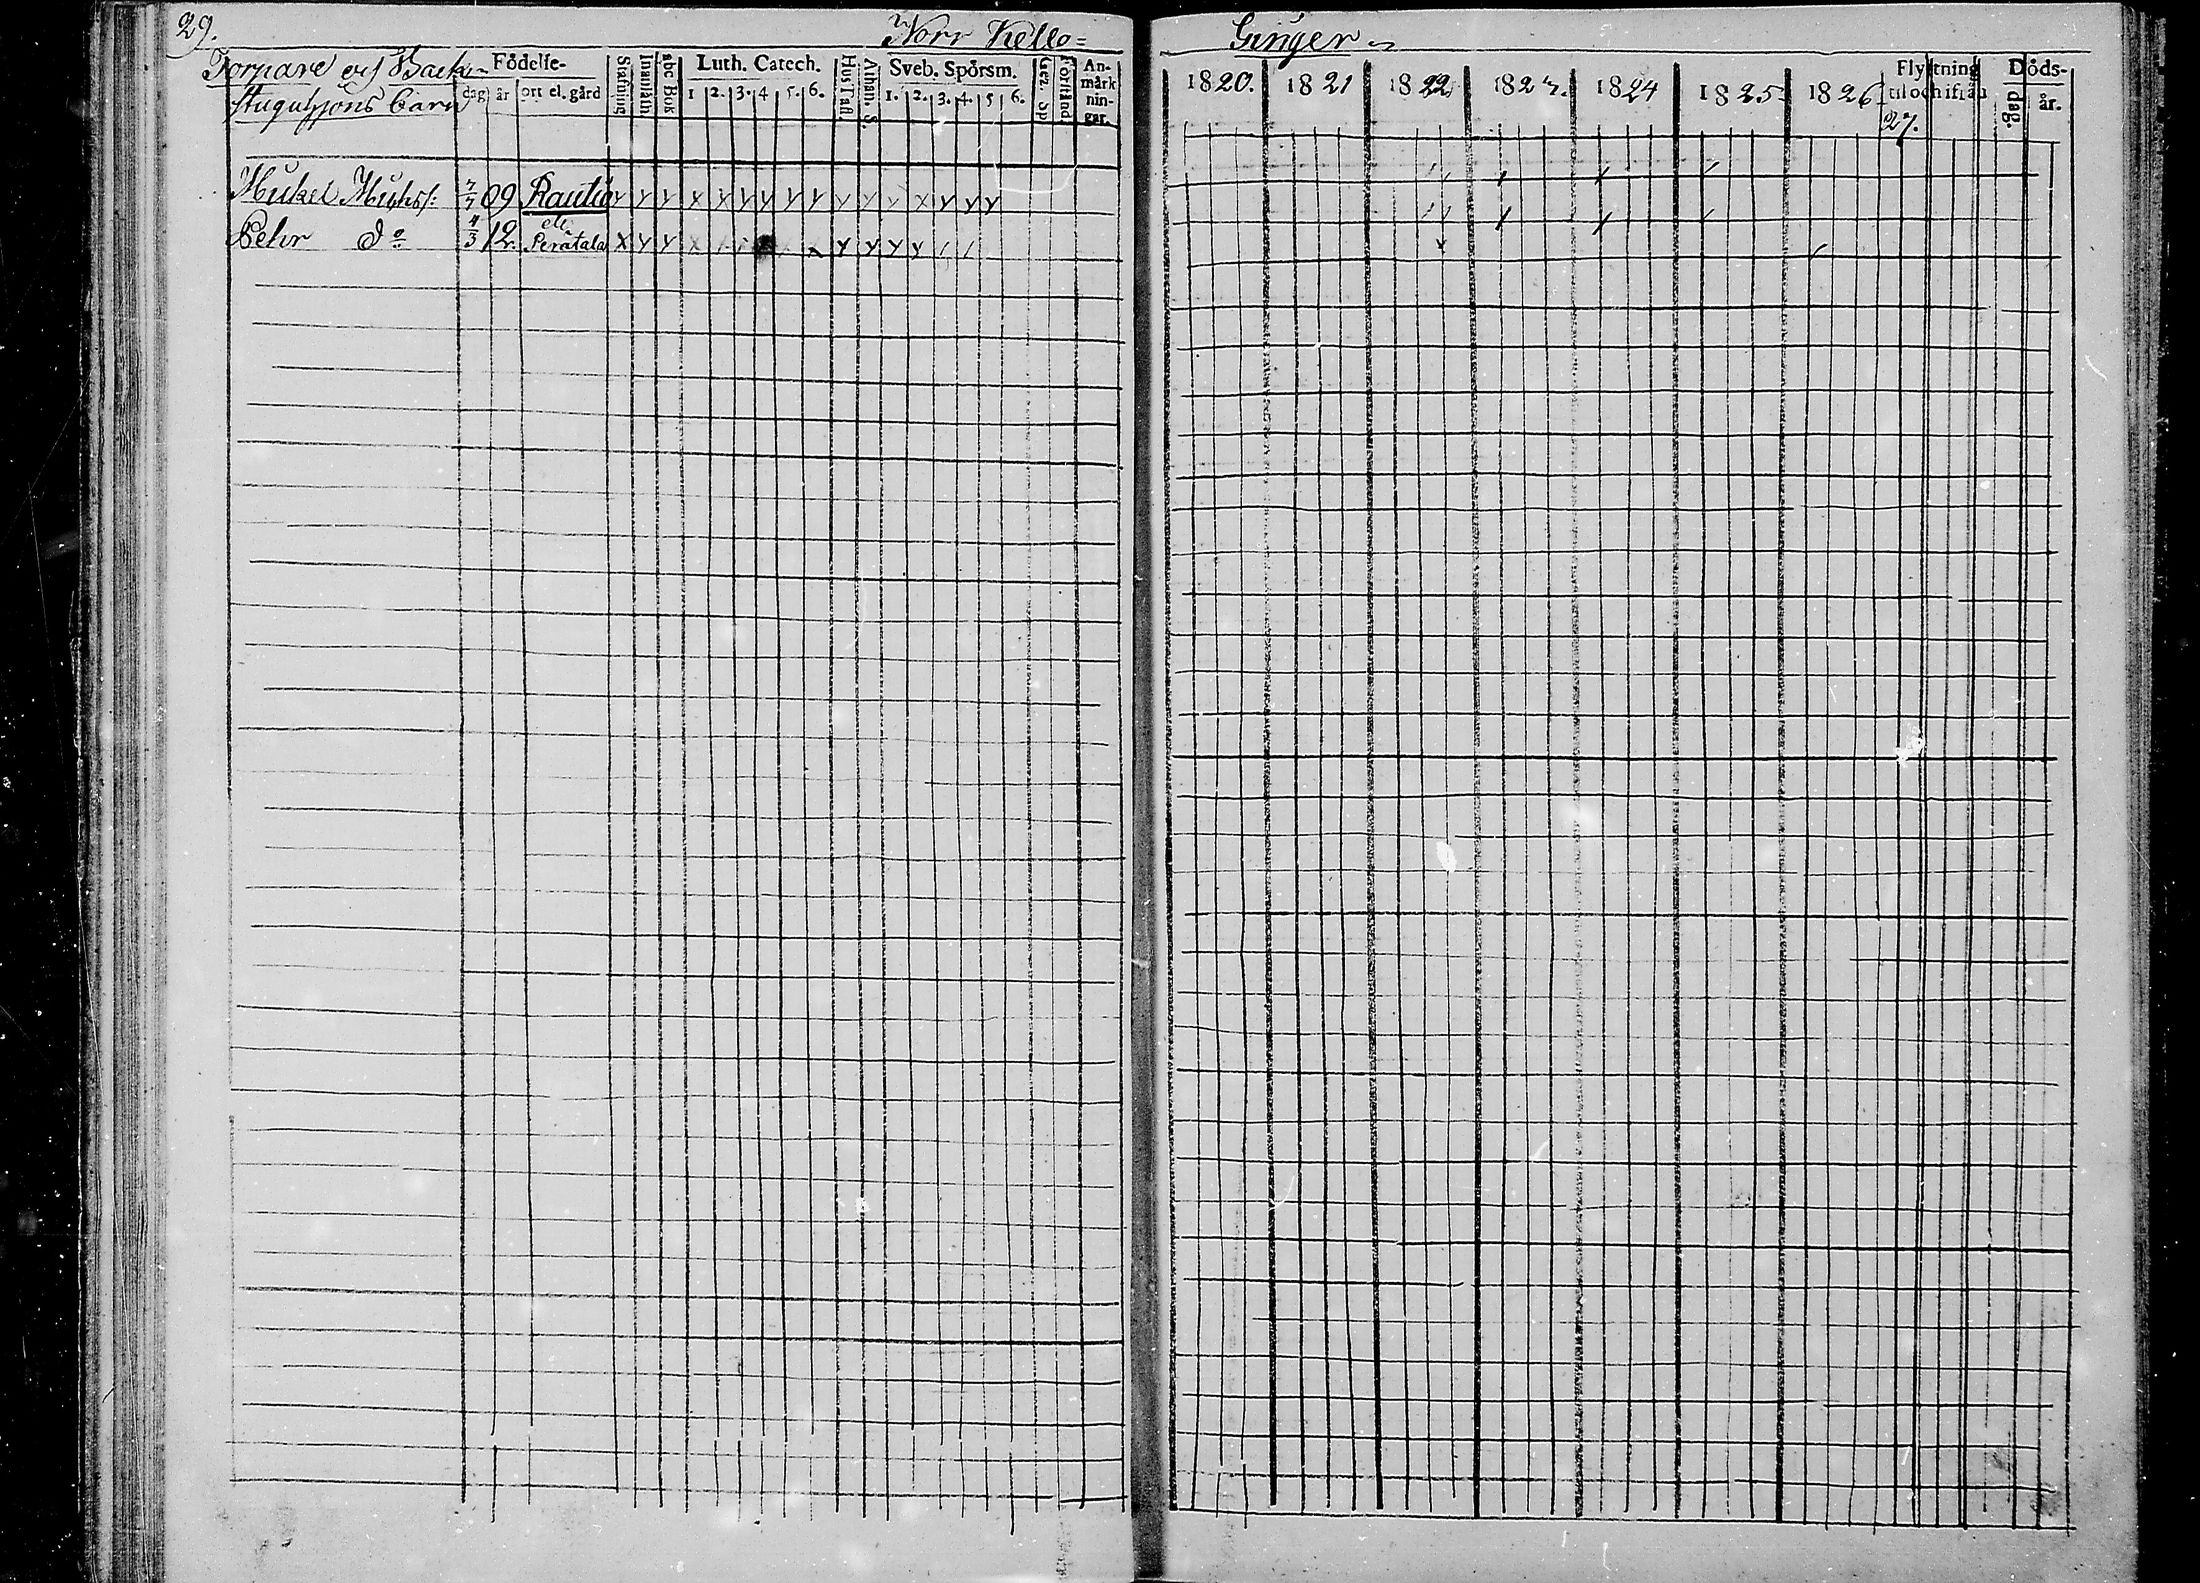 29.
Norr Kello=
Torpare och Back-
stuguhjons barn
Födelse-
dag år ort el. gård
Stafning
Innanläsn
abc Bok
Luth. Catech.
1 2. 3. 4 5. 6.
Hus Tafl.
Athan. S.
Sveb. Spörsm.
1. 2. 3. 4. 5 6.
Gez. Sp
Förstånd.
An-
märk
nin-
gar.
Mickel Michelss:
7/7 09 Rautio
Y Y Y X X Y Y Y Y Y Y Y X Y Y Y
Pehr Do
4/3 12. Peratalo
X Y Y
Y Y Y Y
Ginger
1820. 1821 1822 1823. 1824 1825 1826
27.
Flyttning
til och ifrån
Döds-
dag. år.